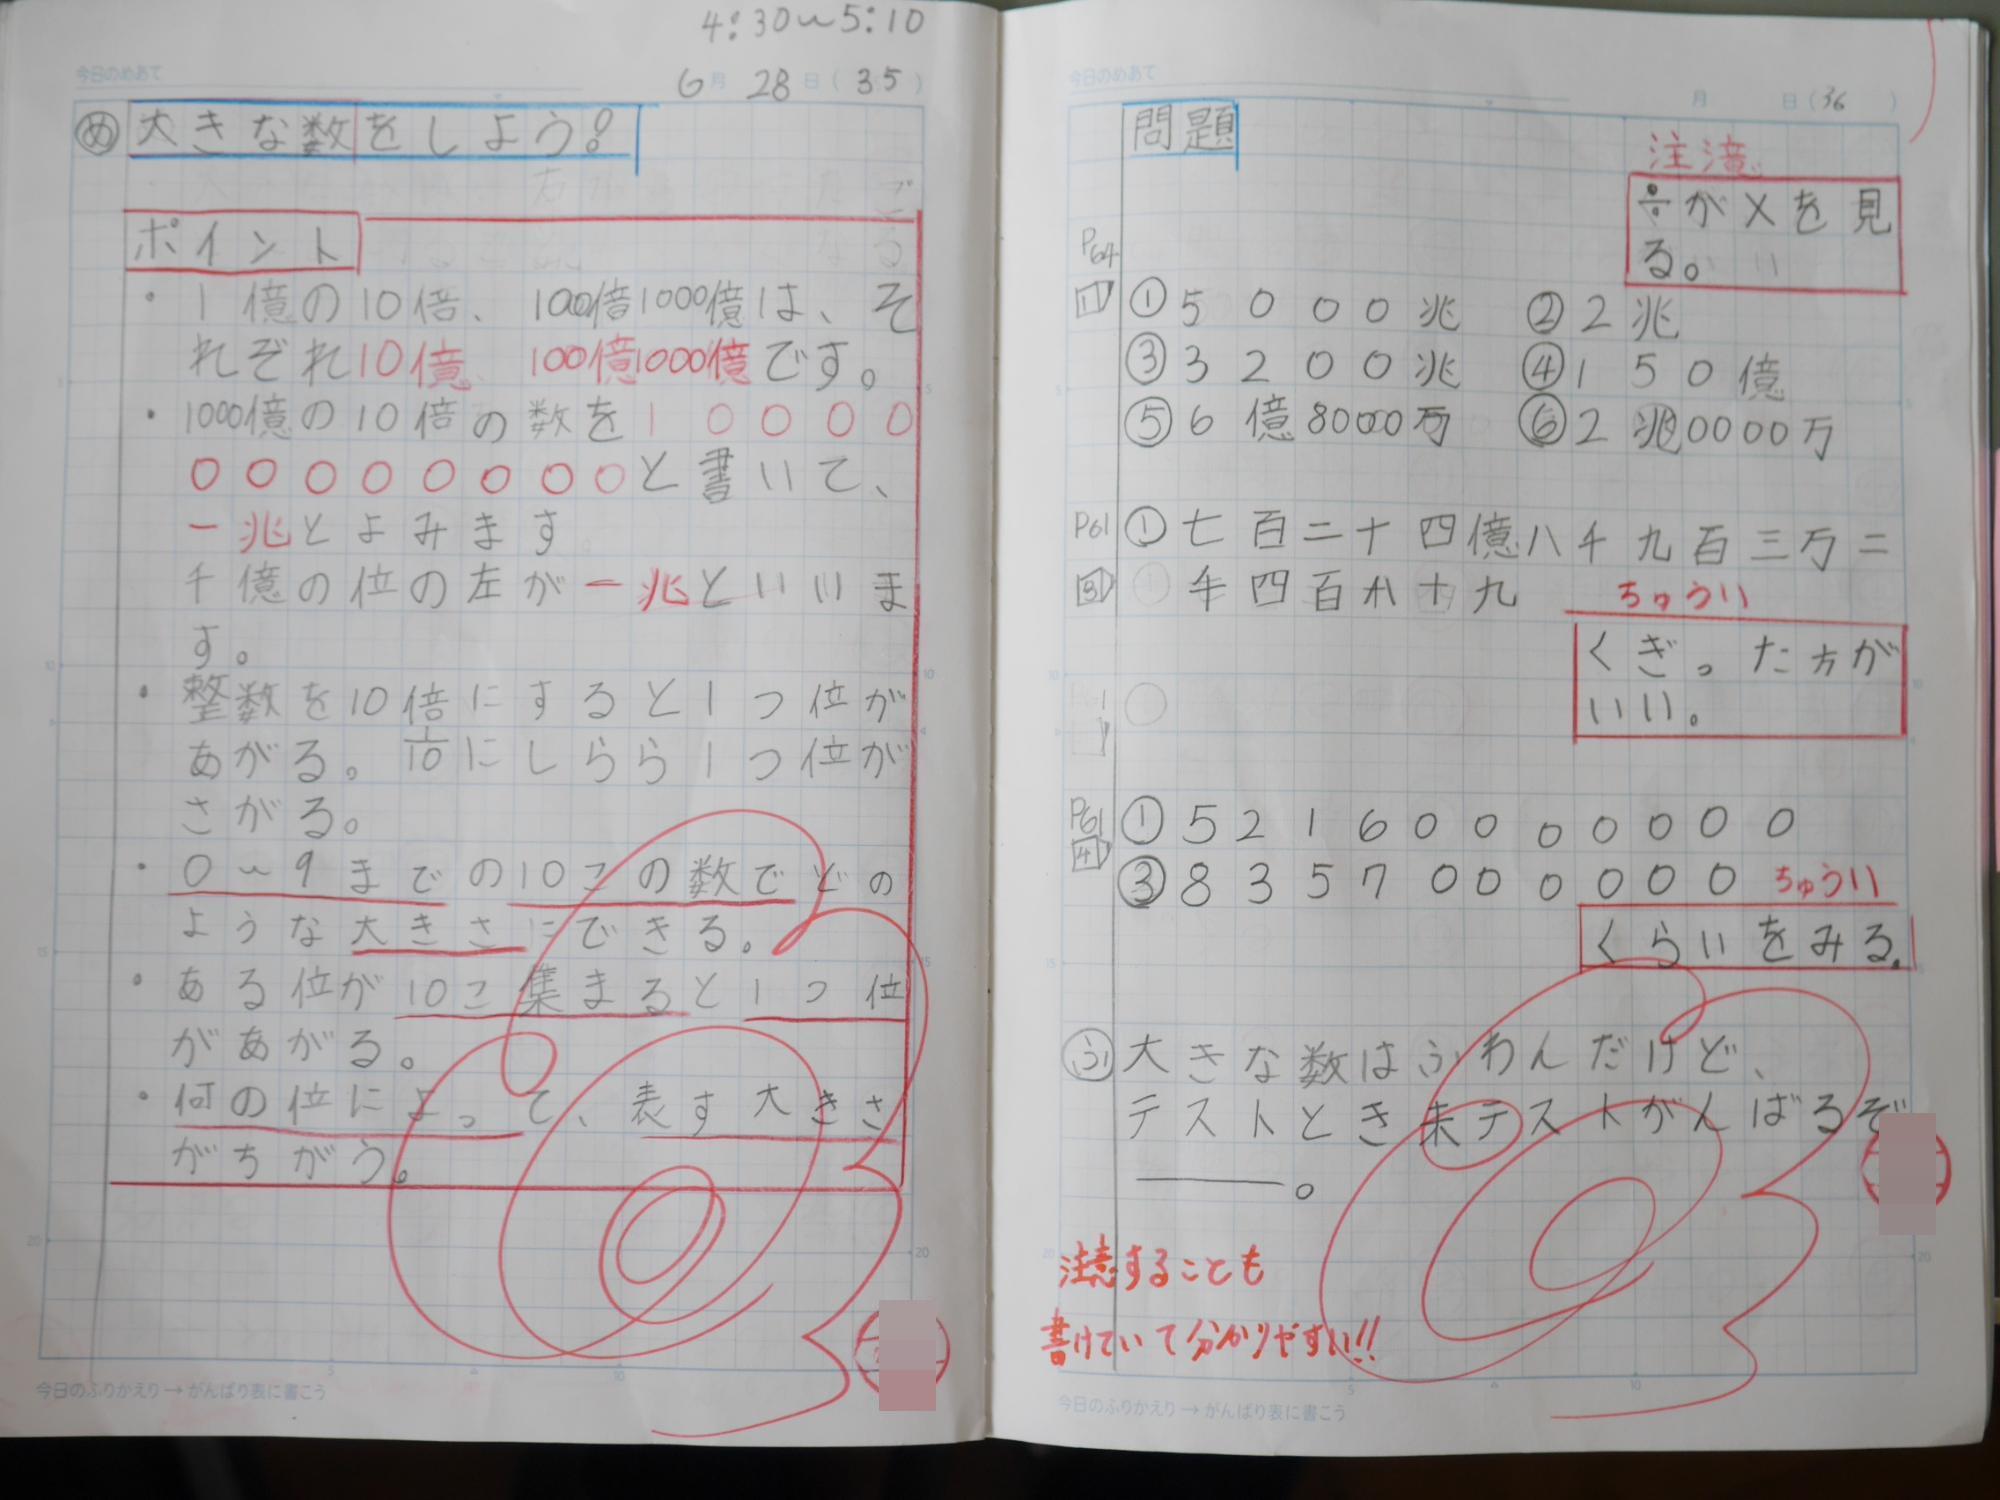 4:30〜5:10
今日のめあて
6月28日(35)
め 大きな数をしよう!
ポイント
・1億の10倍、100倍1000億は、そ
れぞれ10億、100億1000億です。
・1000億の10倍の数を10000
00000000と書いて、
一兆とよみます
千億の位の左が一兆といいま
す。
・整数を10倍にすると1つ位が
あがる。1/10にしらら1つ位が
さがる。
・0〜9までの10この数でどの
ような大きさにできる。
・ある位が10こ集まると1つ位
があがる。
・何の位によって、表す大きさ
がちがう。
今日のふりかえり→がんばり表に書こう
今日のめあて
月 日(36)
問題
注意
÷が×を見
る。
P64
1 ①5000兆 ②2兆
③3200兆 ④150億
⑤6億8000万 ⑥2兆0000万
P61 ①七百二十四億八千九百三万二
3 千四百八十九
ちゅうい
くぎった方が
いい。
P61 ①52160000000
4 ③8357000000
ちゅうい
くらいをみる。
ふ 大きな数はふわんだけど、
テストとき未テストがんばるぞ
――。
注意することも
書けていて分かりやすい!!
今日のふりかえり→がんばり表に書こう